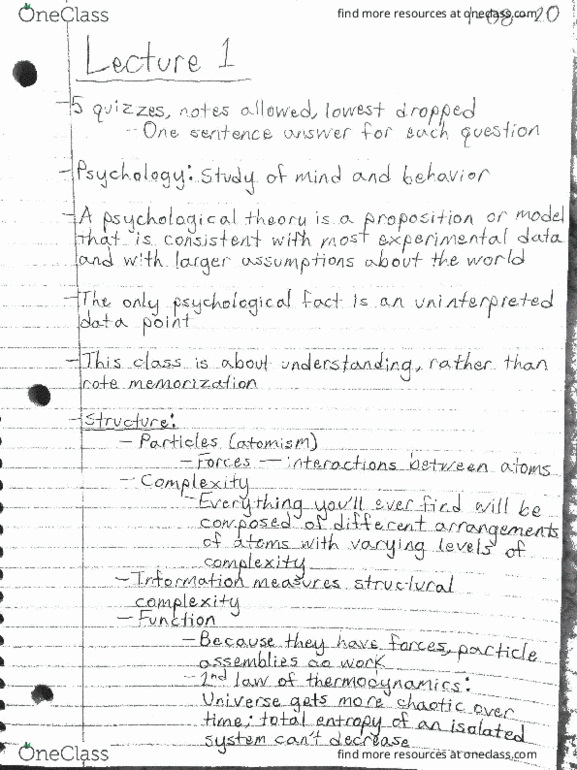 OneClass
find more resources at oneclass.com
20
Lecture 1
- 5 quizzes, notes allowed, lowest dropped
-- One sentence answer for each question
- Psychology: Study of mind and behavior
- A psychological theory is a proposition or model
that is consistent with most experimental data
and with larger assumptions about the world
- The only psychological fact is an uninterpreted
data point
- This class is about understanding, rather than
rote memorization
- Structure:
- Particles (atomism)
- Forces — interactions between atoms
- Complexity
- Everything you'll ever find will be
composed of different arrangements
of atoms with varying levels of
complexity
- Information measures structural
complexity
- Function
- Because they have forces, particle
assemblies do work
- 2nd law of thermodynamics:
Universe gets more chaotic over
time; total entropy of an isolated
system can't decrease
OneClass
find more resources at oneclass.com